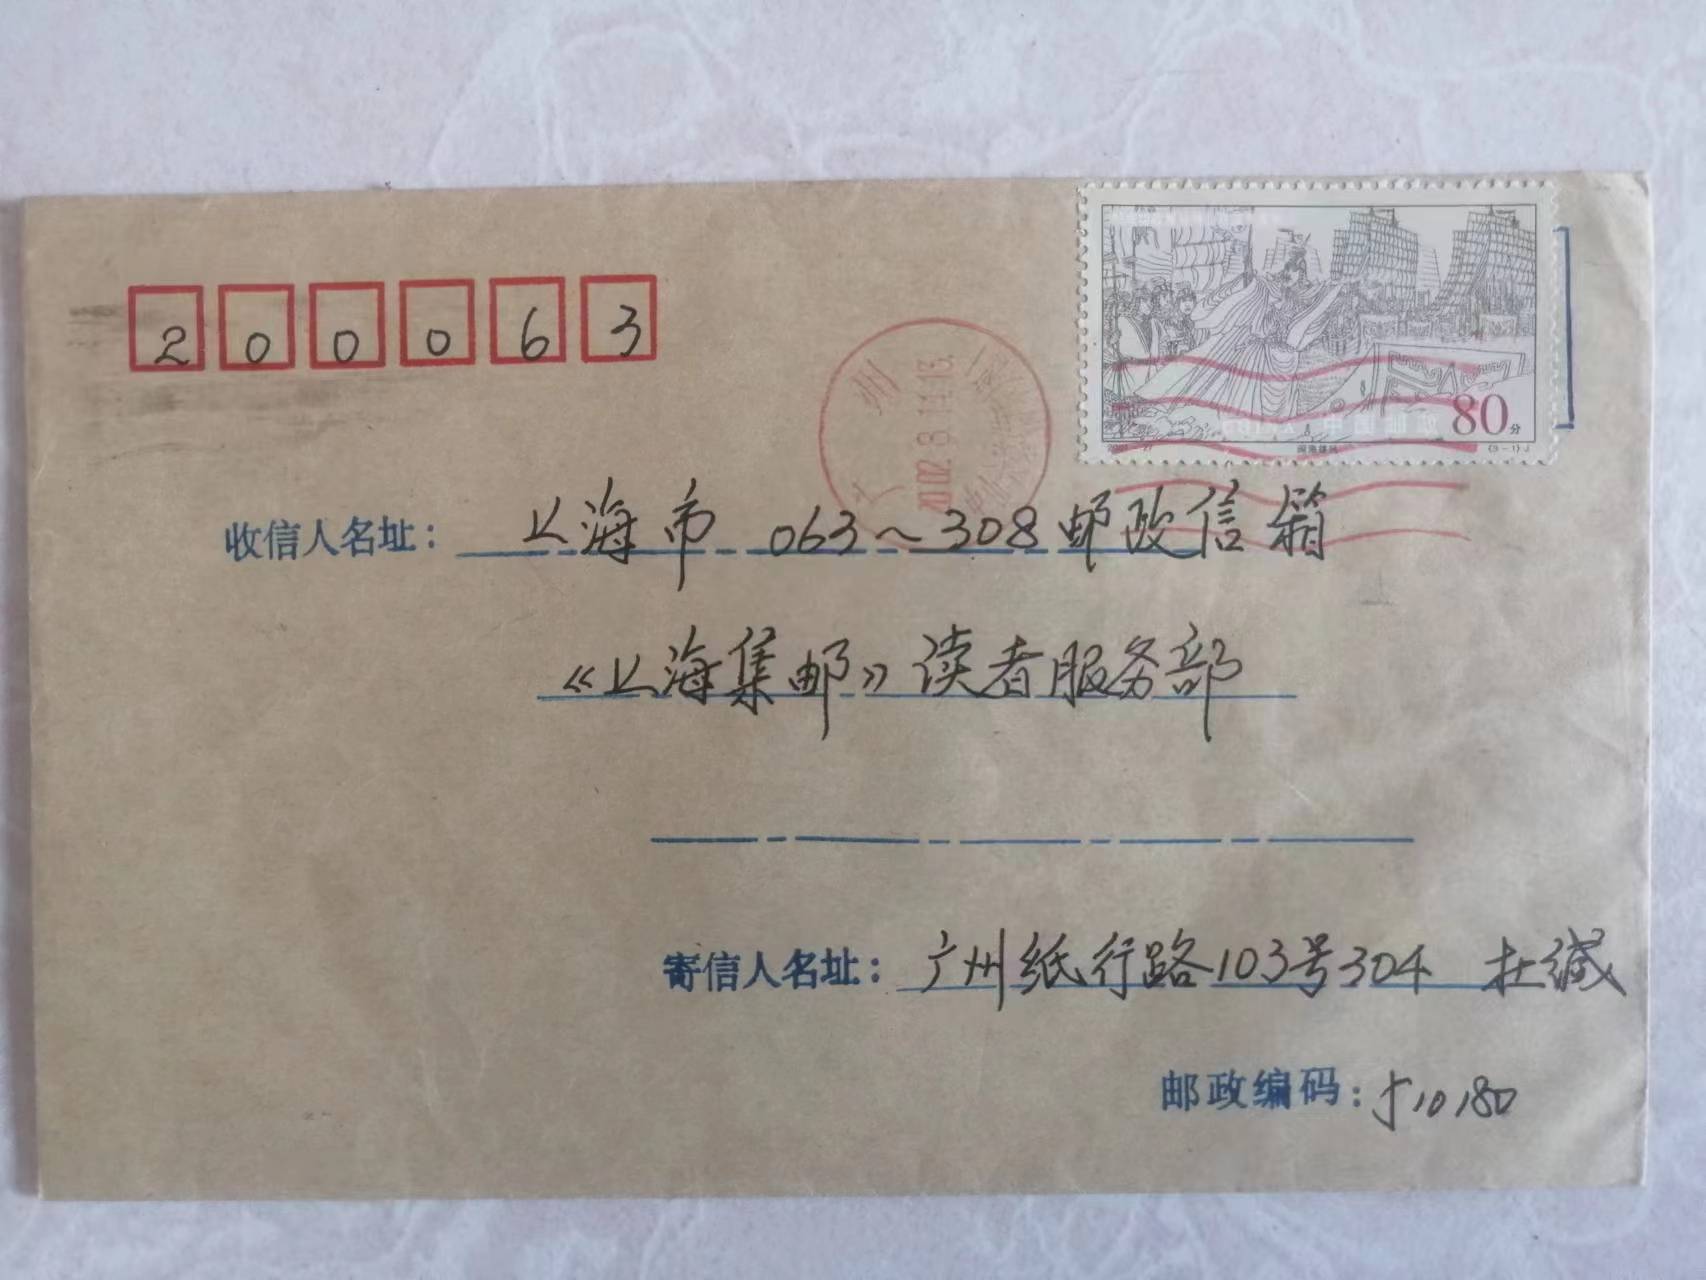 200063
80分
(3-1)J
广州
2002.8.11.13
收信人名址：上海市 063～308邮政信箱
《上海集邮》读者服务部
寄信人名址：广州纸行路103号304 杜缄
邮政编码：510180